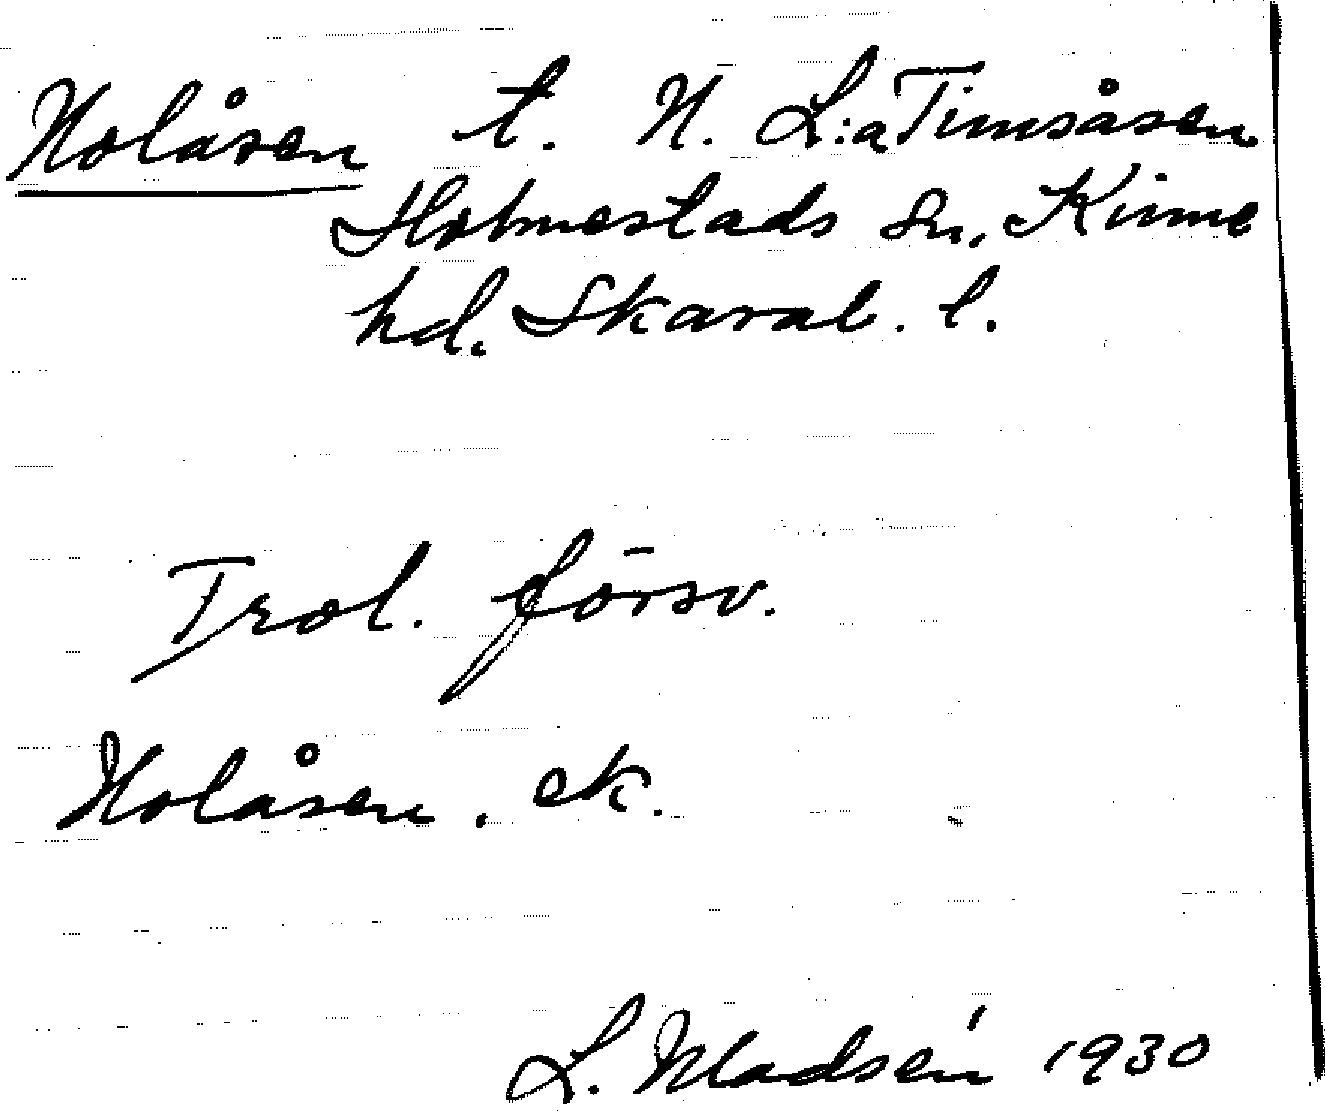 Nolåsen t. N. L:a Timsåsen
Holmestads sn, Kinne
hd. Skarab. l.
Trol. försv.
Nolåsen. ek.
L. Madsén 1930